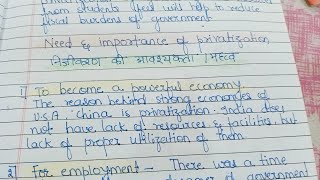 from students that will help to reduce
fiscal burdens of government
Need & importance of privatization
निजीकरण की आवश्यकता / महत्व
1) To become a powerful economy
The reason behind strong economies of
USA, China is privatization. India does
not have lack of resources & facilities, but
lack of proper utilization of them
2) For employment - There was a time
of government